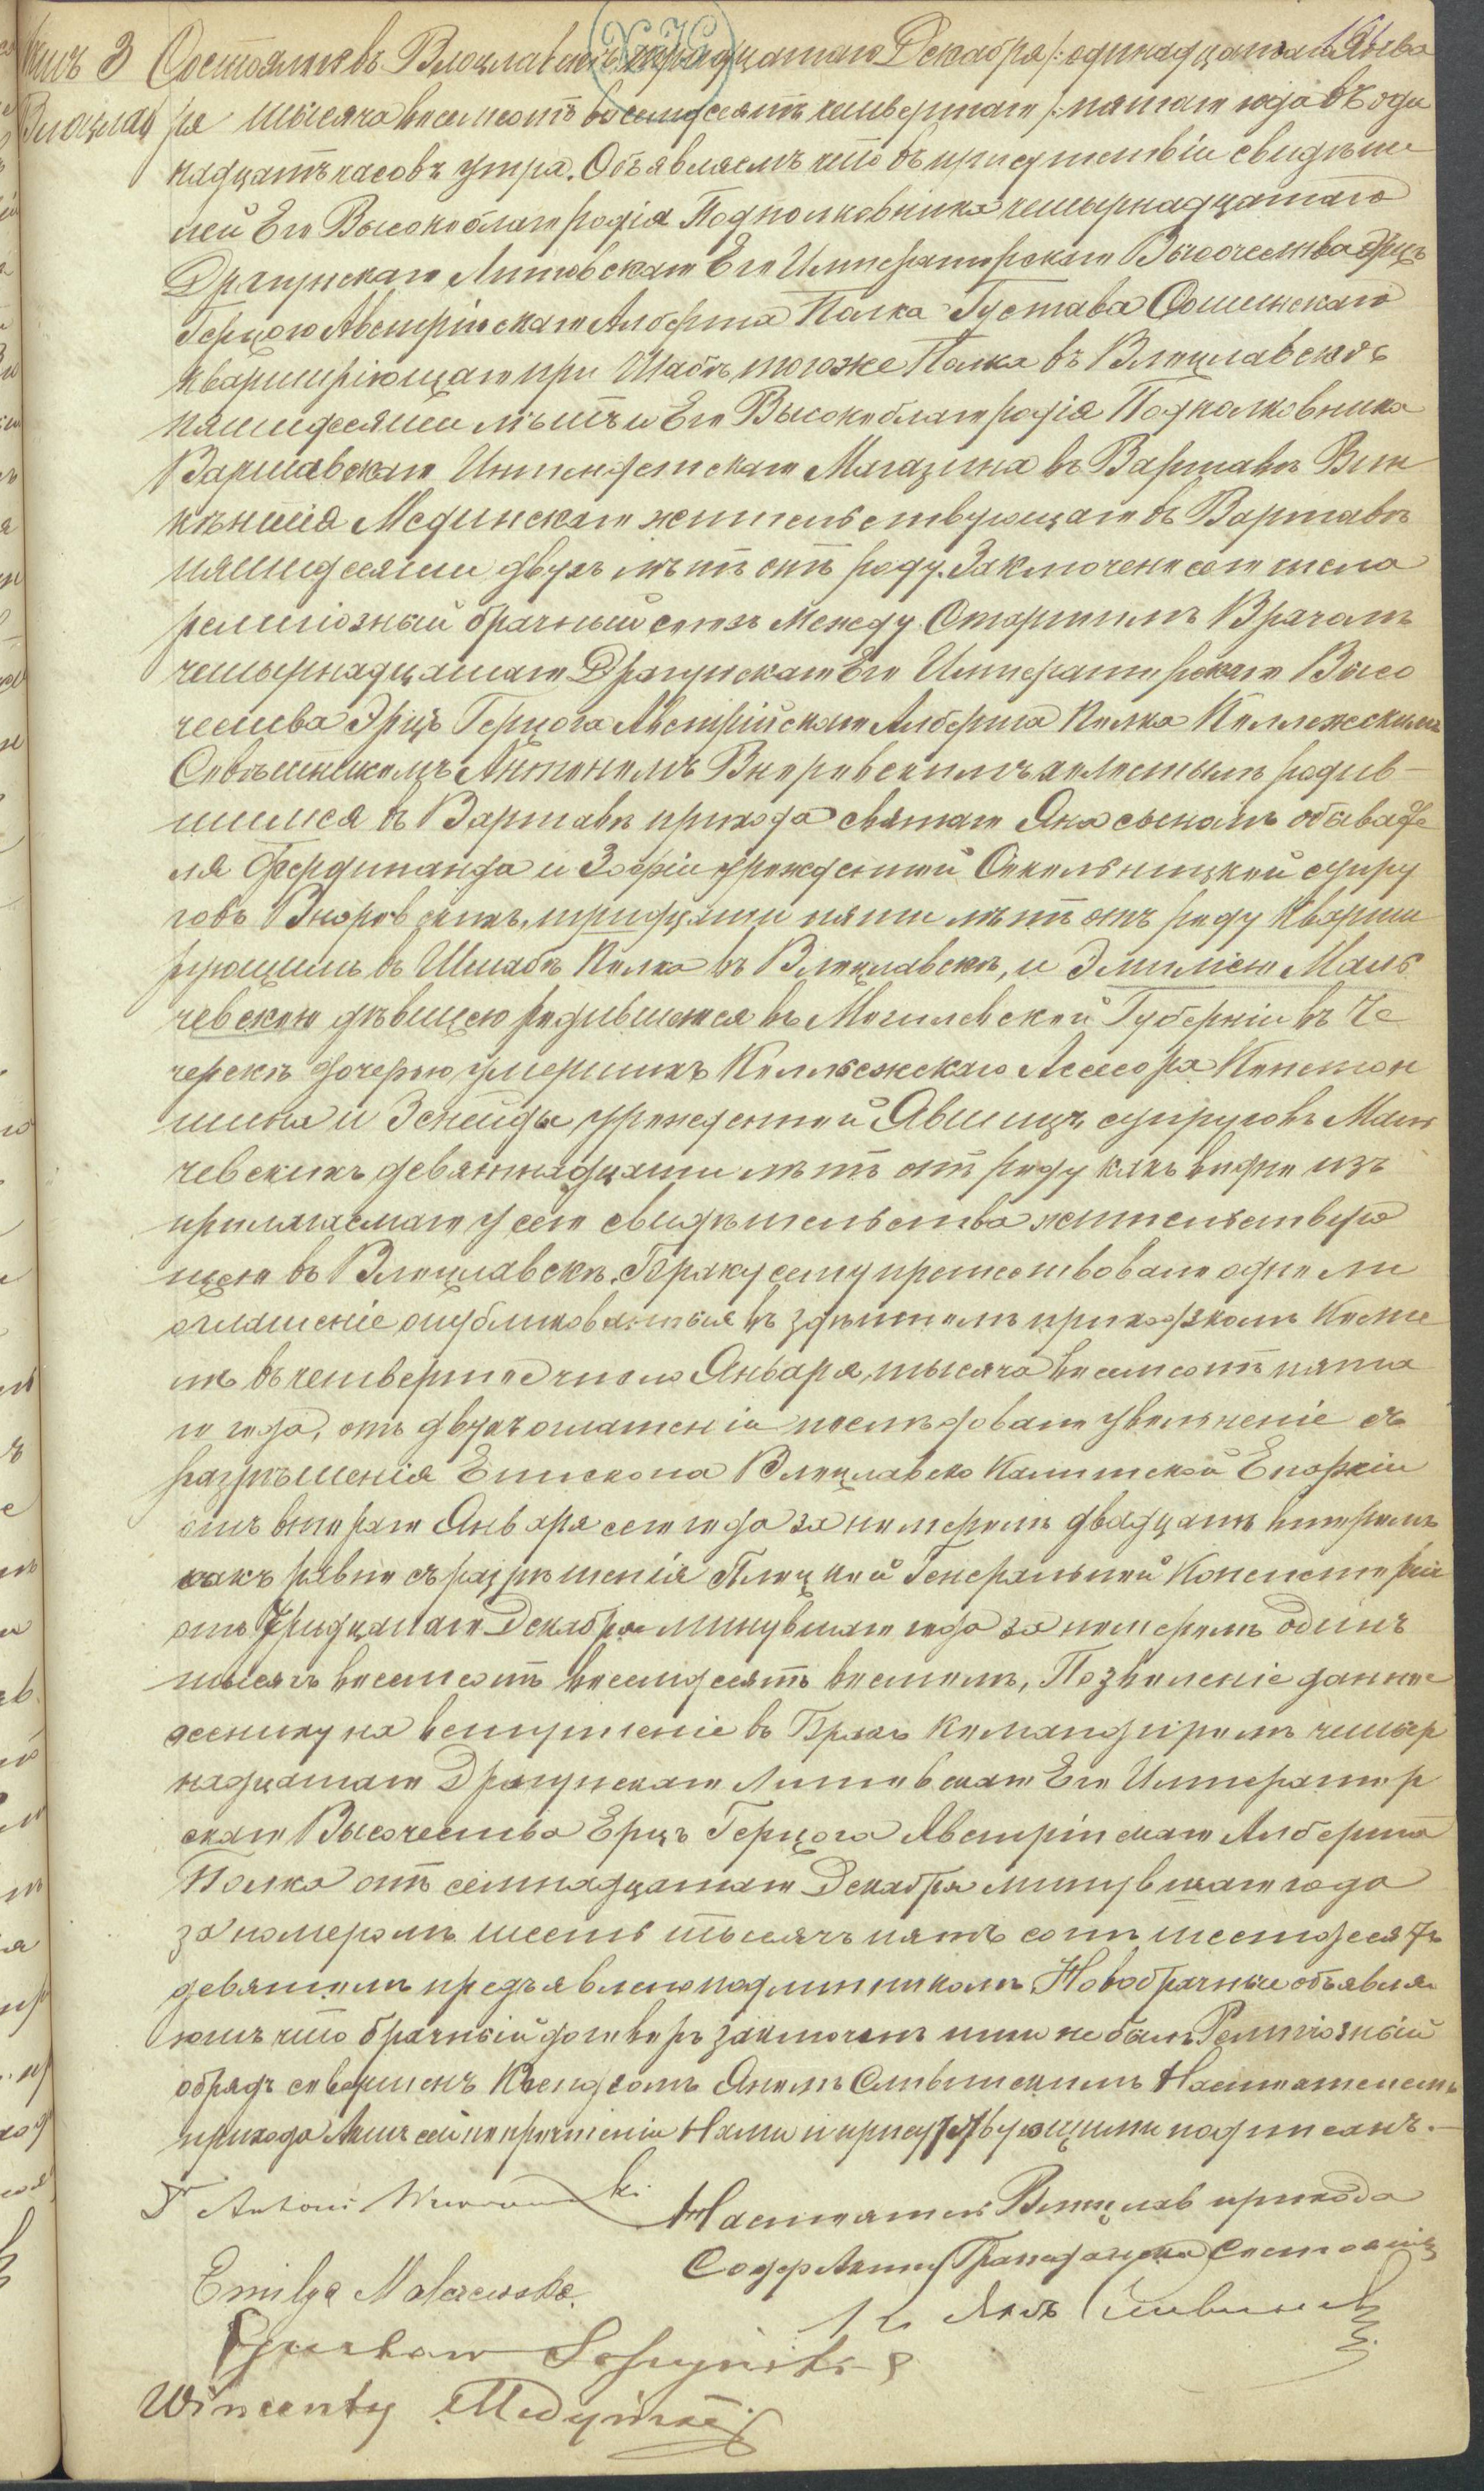 Актъ 3 Состоялось въ Влоцлавскѣ тридцатаго Декабря /: одинадцатаго Янва
Влоцлав ря тысяча восемсотъ восемдесятъ четвертаго /: пятаго года въ оди
надцать часовъ утра. Объявляемъ что въ присутствіи свидѣте
лей Его Высокоблагородія Подполковника четырнадцатаго
Драгунскаго Литовскаго Его Императорскаго Высочества Эрцъ
Герцога Австрійскаго Алберта Полка Густава Сошинскаго
квартирующаго при Штабѣ тогоже Полка въ Влоцлавскѣ
пятидесяти лѣтъ и Его Высокоблагородія Подполковника
Варшавскаго Интендетскаго Магазина въ Варшавѣ Вин
кентія Мединскаго жительствующаго въ Варшавѣ
пятидесяти двухъ лѣтъ отъ роду. Заключено сего числа
религіозный брачный союзъ между Старшимъ Врачомъ
четырнадцатаго Драгунскаго Его Императорскаго Высо
чества Эрцъ Герцога Австрійскаго Алберта Полка Коллежскимъ
Совѣтникомъ Антономъ Вноровскимъ холостымъ родив-
шимся въ Варшавѣ прихода святаго Яна сыномъ обывате
ля Фердинанда и Зофіи урожденной Сокольницкой супру
говъ Вноровскихъ, тридцати пяти лѣтъ отъ роду кварти
рующимъ въ Штабѣ Полка въ Влоцлавскѣ, и Эмиліею Маль
чевскою дѣвицею родившеюся въ Могилевской Губерніи въ Че
черскѣ дочерью умершихъ Коллежскаго Ассесора Констан
тина и Зенеиды урожденной Явшицъ супруговъ Маль
чевскихъ девятнадцати лѣтъ отъ роду какъ видно изъ
прилагаемаго у сего свидѣтельства жительствую
щею въ Влоцлавскѣ. Браку сему предшествовало одно
оглашеніе опубликованныя въ здѣшнемъ приходскомъ Косте
лѣ въ четвертое число Января, тысяча восемсотъ пята
го года, отъ двухъ оглашеній послѣдовало увольненіе съ
разрѣшенія Епископа Влоцлавско Калишской Епархіи
отъ втораго Января сего года за номеромъ двадцать вторымъ
какъ равно съ разрѣшенія Плоцкой Генеральной Консисторіи
отъ Тридцатаго Декабря минувшаго года за номеромъ одинъ
тысяча восемсотъ восемдесятъ восмымъ, Позволеніе данное
жениху на вступленіе въ Бракъ командиромъ четыр
надцатаго Драгунскаго Литовскаго Его Император
скаго Высочества Ерцъ Герцога Австрійскаго Алберта
Полка отъ семнадцатаго Декабря минувшаго года
за номеромъ шесть тысячъ пять сотъ шестдесятъ
девятымъ предъявлено подлинникомъ Новобрачные объявля
ютъ что брачный договоръ заключенъ ими не былъ Религіозный
обрядъ совершенъ Ксендзомъ Яномъ Сливинскимъ Настоятелемъ
прихода Актъ сей по прочтеніи Нами и присутствующими подписанъ.—
Dr Antoni Wnorowski
Настоятель Влоцлав прихода
Содерж Акты Гражданскаго Состоянія
Emilya Malczewska
Кс Янъ Сливинскій
Gustaw Soszyński
Wincenty Medyński